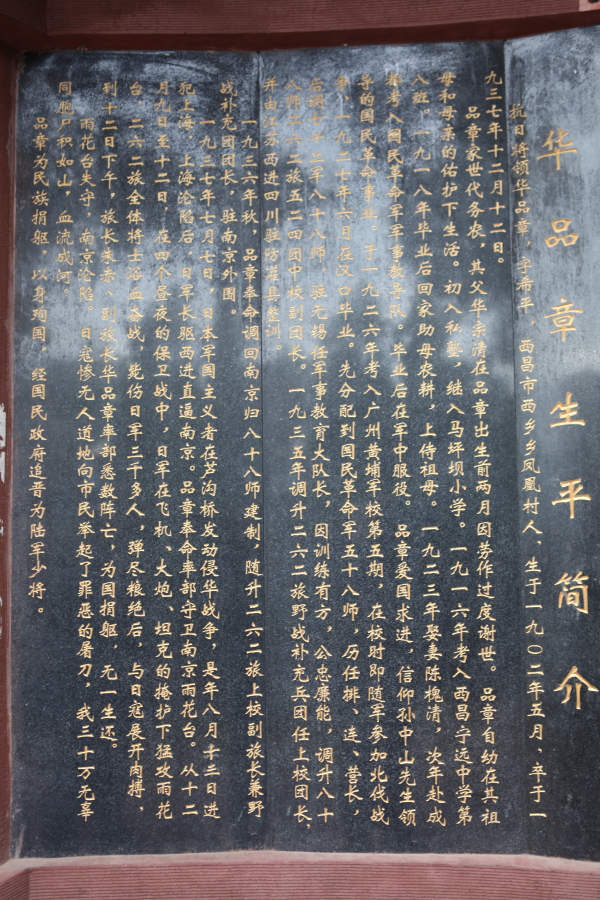 华品章生平简介
抗日将领华品章，字希平，西昌市西乡乡凤凰村人、生于一九〇二年五月、卒于一
九三七年十二月十二日。
品章家世代务农，其父华宗清在品章出生前两月因劳作过度谢世。品章自幼在其祖
母和母亲的佑护下生活。初入私塾，继入马坪坝小学。一九一六年考入西昌宁远中学第
八班。一九一八年毕业后回家助母农耕，上侍祖母。一九二三年娶妻陈槐清，次年赴成
都考入国民革命军军事教导队。毕业后在军中服役。品章爱国求进，信仰孙中山先生领
导的国民革命事业。于一九二六年考入广州黄埔军校第五期，在校时即随军参加北伐战
争，一九二七年六月在汉口毕业。先分配到国民革命军五十八师，历任排、连、营长，
后调七十二军八十八师，驻无锡任军事教育大队长，因训练有方，公忠廉能，调升八十
八师二六二旅五二四团中校副团长。一九三五年调升二六二旅野战补充兵团任上校团长，
并由江苏西进四川驻防灌县整训。
一九三六年秋，品章奉命调回南京归八十八师建制，随升二六二旅上校副旅长兼野
战补充团团长，驻南京外围。
一九三七年七月七日，日本军国主义者在芦沟桥发动侵华战争，是年八月十三日进
犯上海，上海沦陷后，日军长驱西进直逼南京。品章奉命率部守卫南京雨花台。从十二
月九日至十二日，在四个昼夜的保卫战中，日军在飞机、大炮、坦克的掩护下猛攻雨花
台，二六二旅全体将士浴血奋战，毙伤日军三千多人，弹尽粮绝后，与日寇展开肉搏，
到十二日下午，旅长朱赤、副旅长华品章率部悉数阵亡，为国捐躯，无一生还。
雨花台失守，南京沦陷。日寇惨无人道地向市民举起了罪恶的屠刀，我三十万无辜
同胞尸积如山，血流成河。
品章为民族捐躯，以身殉国，经国民政府追晋为陆军少将。